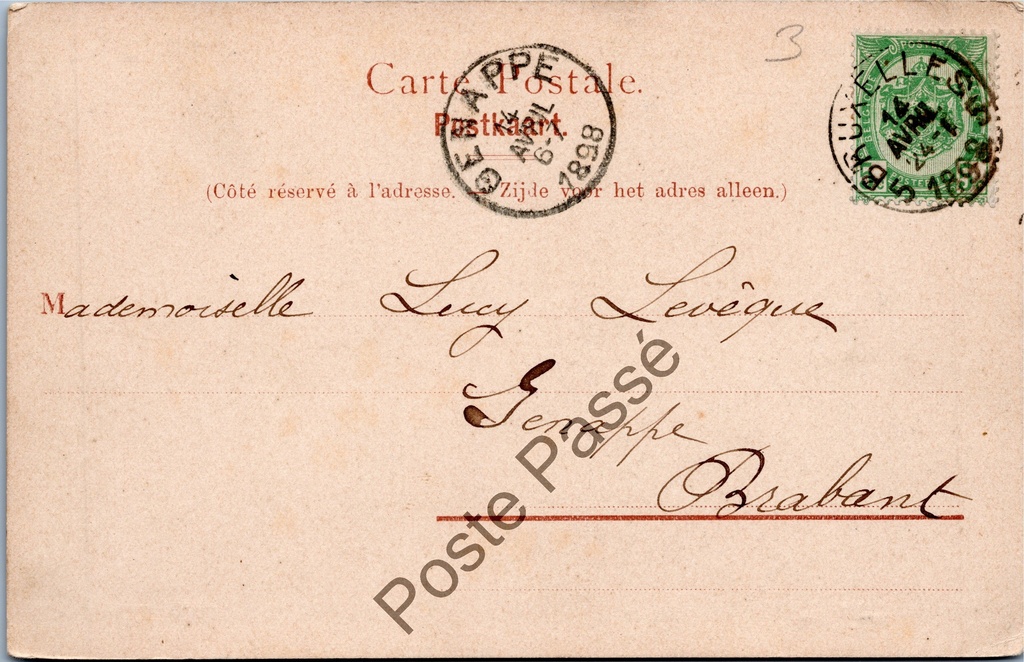 3
Carte Postale.
Postkaart.
(Côté réservé à l'adresse. — Zijde voor het adres alleen.)
GENAPPE
14
AVRIL
6-7
1898
POSTES
BRUXELLES 5
14
AVRIL
1898
Mademoiselle Lucy Levêque
Genappe
Brabant
Poste Passé